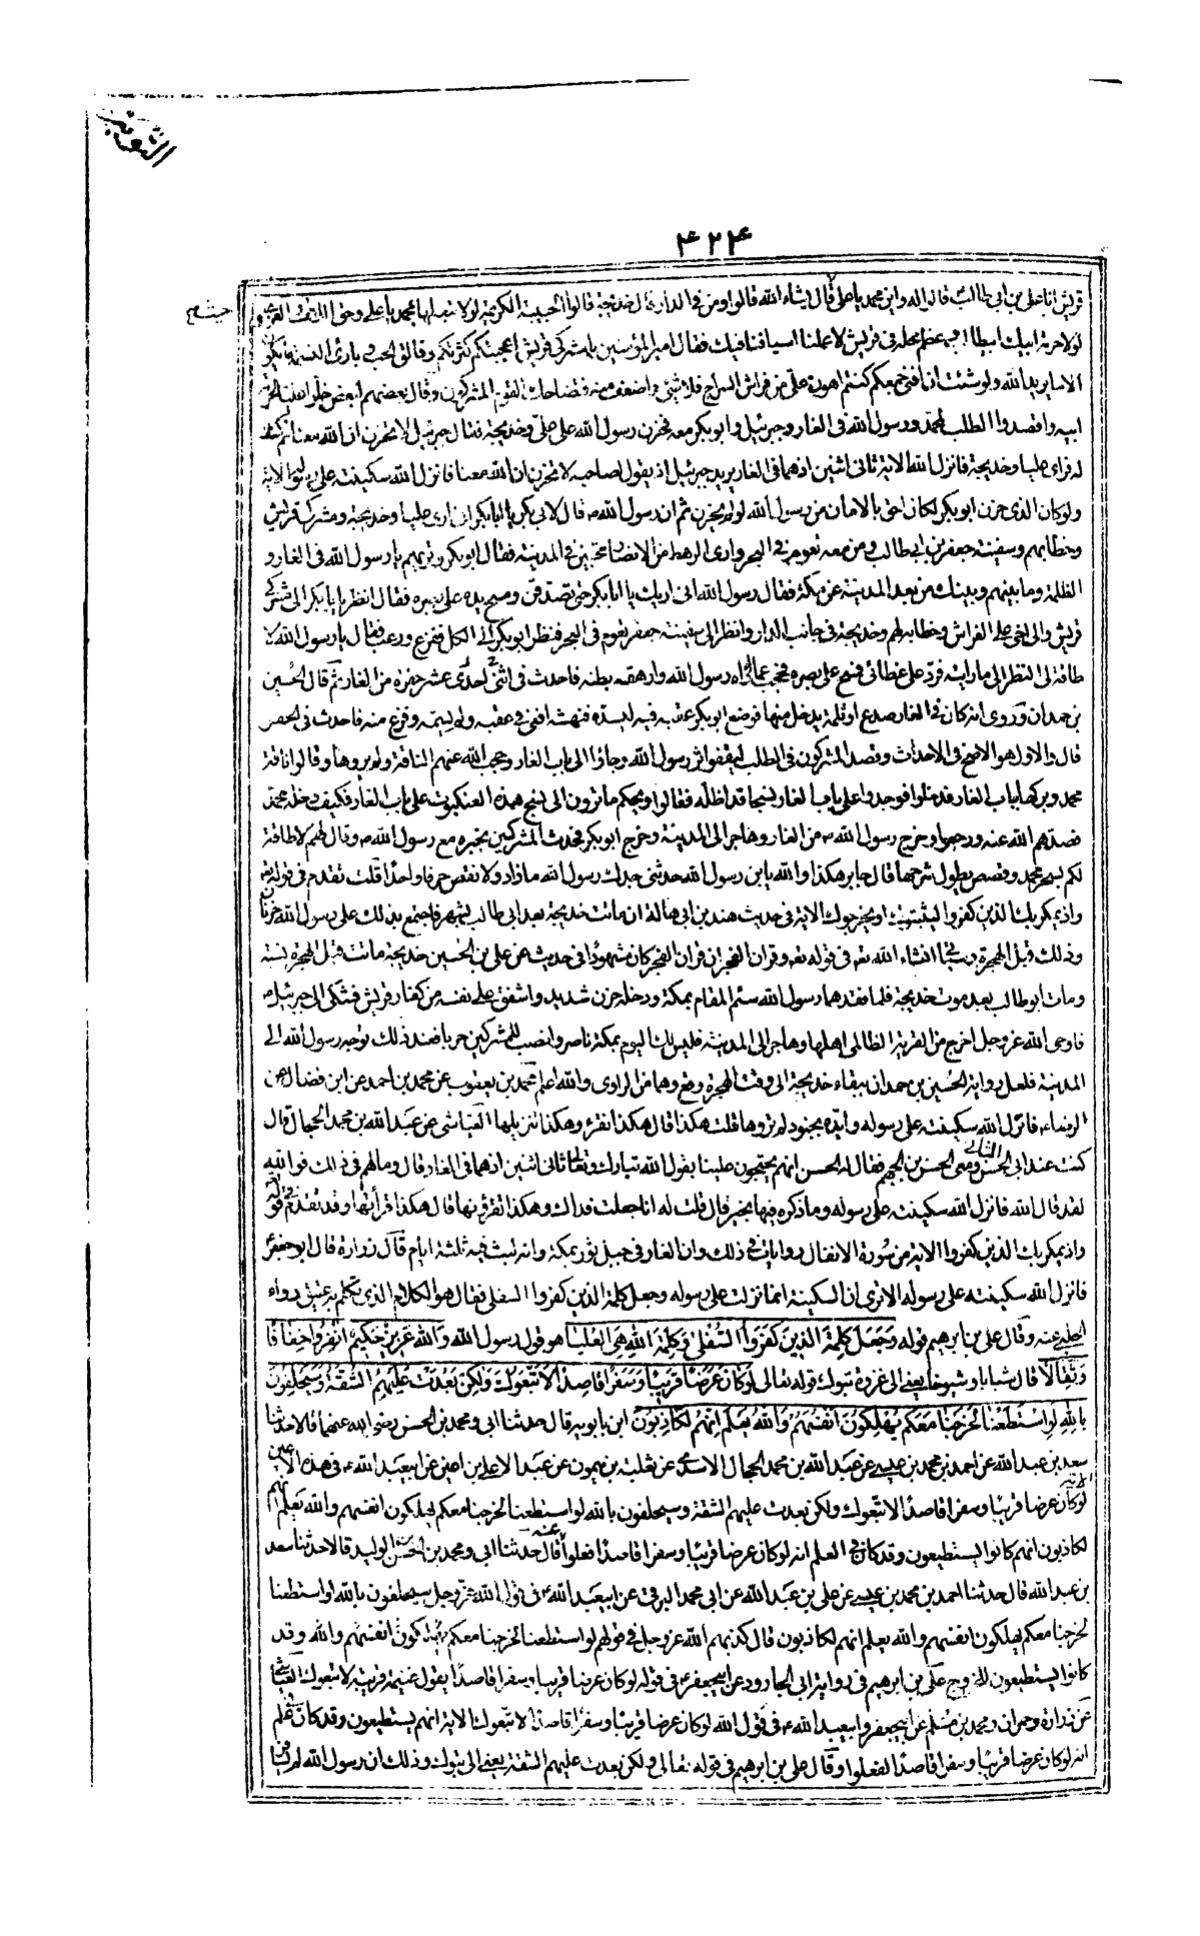 التوبة
۴۲۴
قريش انا علی بن ابی طالب قالوا له واين محمد يا علی قال حيث شاء الله قالوا ومن فی الدار قال خديجة قالوا الحبيبة الكريمة لولا تبعلها بمحمد يا علی وحق اللات والعزی
حيث خ
لولا حرمة ابيك ابيطالب وعظم محله فی قريش لاعملنا اسيافنا فيك فقال امير المؤمنين يا مشركی قريش اعجبتكم كثرتكم وفالق الحب وباری النسمة ما يكون
الا ما يريد الله ولو شئت ان افنی جمعكم كنتم اهون علی من فراش السراج فلا شیء اضعف منه فتضاحك القوم المشركون وقال بعضهم لبعض خلوا عليا لحرمة
ابيه واقصدوا الطلب لمحمد ورسول الله فی الغار وجبرئيل وابو بكر معه فحزن رسول الله علی علی وخديجة فقال جبرئيل لا تحزن ان الله معنا ثم كشف
له فرای عليا وخديجة فانزل الله الاية ثانی اثنين اذ هما فی الغار يريد جبرئيل اذ يقول لصاحبه لا تحزن ان الله معنا فانزل الله سكينته علی رسوله الاية
ولو كان الذی حزن ابو بكر لكان احق بالامان من رسول الله لو لم يحزن ثم ان رسول الله ص قال لابی بكر يا ابا بكر انی اری عليا وخديجة ومشركی قريش
وخطابهم وسفينة جعفر بن ابی طالب ومن معه تعوم فی البحر واری الرهط من الانصار مجتمعين فی المدينة فقال ابو بكر وتريهم يا رسول الله فی الغار و
الظلمة وما بينهم وبينك من بعد المدينة عن مكة فقال رسول الله انی اريك يا ابا بكر حتی تصدقنی ومسح يده علی بصره فقال انظر يا ابا بكر الی مشركی
قريش والی اخی علی الفراش وخطابه لهم وخديجة فی جانب الدار وانظر الی سفينة جعفر تعوم فی البحر فنظر ابو بكر الی الكل ففزع ورعب فقال يا رسول الله لا
طاقة لی النظر الی ما رايته فرد علی غطائی فمسح علی بصره فحجب عما اراه رسول الله وارهقه بطنه فاحدث فی اثنی احدی عشر حفرة من الغار ثم قال الحسين
بن حمدان وروی انه كان فی الغار صدع او ثلمة يدخل منها فوضع ابو بكر عقبه فيه ليسده فنهشه افعی فی عقبه ولم ليسمه وفزع منه فاحدث فی الحفر
قال والاول هو الاصح فی الاحداث وقصد المشركون فی الطلب ليقفوا اثر رسول الله وجاؤا الی باب الغار وحجب الله عنهم الناقة ولم يروها وقالوا ناقة
محمد وبركها باب الغار فدخلوا فوجدوا علی باب الغار نسجا قد اظله فقالوا ويحكم ما ترون الی نسج هذه العنكبوت علی باب الغار فكيف دخله محمد
فصدهم الله عنه ورجعوا وخرج رسول الله ص من الغار وهاجر الی المدينة وخرج ابو بكر فحدث المشركين بخبره مع رسول الله ص وقال لهم لا طاقة
لكم بسحر محمد وقصص يطول شرحها قال جابر هكذا والله يا بن رسول الله حدثنی جدك رسول الله ما زاد ولا نقص حرفا واحدا قلت تقدم فی قوله تعالی
واذ يمكر بك الذين كفروا ليثبتوك او يخرجوك الاية فی حديث هند بن ابی هالة ان ماتت خديجة بعد ابی طالب بشهر فاجتمع بذلك علی رسول الله حزنان
وذلك قبل الهجرة وسيجیء انشاء الله تعالی فی قوله تعالی وقران الفجر ان قران الفجر كان مشهودا فی حديث عن علی بن الحسين خديجة ماتت قبل الهجرة بسنة
ومات ابو طالب بعد موت خديجة فلما فقدهما رسول الله سئم المقام بمكة ودخله حزن شديد واشفق علی نفسه من كفار قريش فشكی الی جبرئيل ع
فاوحی الله عز وجل اخرج من القرية الظالم اهلها وهاجر الی المدينة فليس لك اليوم بمكة ناصر وانصب للمشركين حربا فعند ذلك توجه رسول الله الی
المدينة فلعل رواية الحسين بن حمدان ببقاء خديجة الی وقت الهجرة وقع وهما من الراوی والله اعلم محمد بن يعقوب عن محمد بن احمد عن ابن فضال عن
الرضا ع فانزل الله سكينته علی رسوله وايده بجنود لم تروها قلت هكذا قال هكذا نقرؤ وهكذا تنزيلها العياشی عن عبد الله بن محمد الحجال قال
كنت عند ابی الحسن الثانی ومعی الحسن بن الجهم فقال له الحسن انهم يحتجون علينا بقول الله تبارك وتعالی ثانی اثنين اذ هما فی الغار قال وما لهم فی ذلك فوالله
لقد قال الله فانزل الله سكينته علی رسوله وما ذكره فيها بخير قال قلت له انا جعلت فداك وهكذا تقرؤنها قال هكذا قرأتها وقد تقدم فی قوله
واذ يمكر بك الذين كفروا الاية من سورة الانفال روايات فی ذلك وان الغار فی جبل ثور بمكة وانه لبث فيه ثلثة ايام قال زرارة قال ابو جعفر
فانزل الله سكينته علی رسوله الا تری ان السكينة انما نزلت علی رسوله وجعل كلمة الذين كفروا السفلی فقال هو الكلام الذی تكلم به عتيق رواه
الحلبی عنه وقال علی بن ابرهيم قوله وَجَعَلَ كَلِمَةَ الَّذِينَ كَفَرُوا السُّفْلى وَكَلِمَةُ اللهِ هِيَ الْعُلْيا هو قول رسول الله وَاللهُ عَزِيزٌ حَكِيمٌ انْفِرُوا خِفافًا
وَثِقالًا قال شبابا وشيوخا يعنی الی غزوة تبوك قوله تعالی لَوْ كانَ عَرَضًا قَرِيبًا وَسَفَرًا قاصِدًا لَاتَّبَعُوكَ وَلكِنْ بَعُدَتْ عَلَيْهِمُ الشُّقَّةُ وَسَيَحْلِفُونَ
بِاللهِ لَوِ اسْتَطَعْنا لَخَرَجْنا مَعَكُمْ يُهْلِكُونَ أَنْفُسَهُمْ وَاللهُ يَعْلَمُ إِنَّهُمْ لَكاذِبُونَ ابن بابويه قال حدثنا ابی ومحمد بن الحسن رضی الله عنهما قالا حدثنا
سعد بن عبد الله عن احمد بن محمد بن عيسی عن عبد الله بن محمد الحجال الاسدی عن ثعلبة بن ميمون عن عبد الاعلی بن اعين عن ابيعبد الله ع فی هذه الاية
لو كان عرضا قريبا وسفرا قاصدا لاتبعوك ولكن بعدت عليهم الشقة وسيحلفون بالله لو استطعنا لخرجنا معكم يهلكون انفسهم والله يعلم انهم
لكاذبون انهم كانوا يستطيعون وقد كان فی العلم انه لو كان عرضا قريبا وسفرا قاصدا لفعلوا عنه قال حدثنا ابی ومحمد بن الحسن بن الوليد قالا حدثنا سعد
بن عبد الله قال حدثنا احمد بن محمد بن عيسی عن علی بن عبد الله عن ابی محمد البرقی عن ابيعبد الله ع فی قول الله عز وجل سيحلفون بالله لو استطعنا
لخرجنا معكم يهلكون انفسهم والله يعلم انهم لكاذبون قال كذبهم الله عز وجل فی قولهم لو استطعنا لخرجنا معكم يهلكون انفسهم والله وقد
كانوا يستطيعون للخروج علی بن ابرهيم فی رواية ابی الجارود عن ابيجعفر ع فی قوله لو كان عرضا قريبا وسفرا قاصدا يقول غنيمة قريبة لاتبعوك العياشی
عن زرارة وحمران ومحمد بن مسلم عن ابيجعفر وابيعبد الله ع فی قول الله لو كان عرضا قريبا وسفرا قاصدا لاتبعوك الاية انهم يستطيعون وقد كان فی علم
انه لو كان عرضا قريبا وسفرا قاصدا لفعلوا وقال علی بن ابرهيم فی قوله تعالی ولكن بعدت عليهم الشقة يعنی الی تبوك وذلك ان رسول الله لم